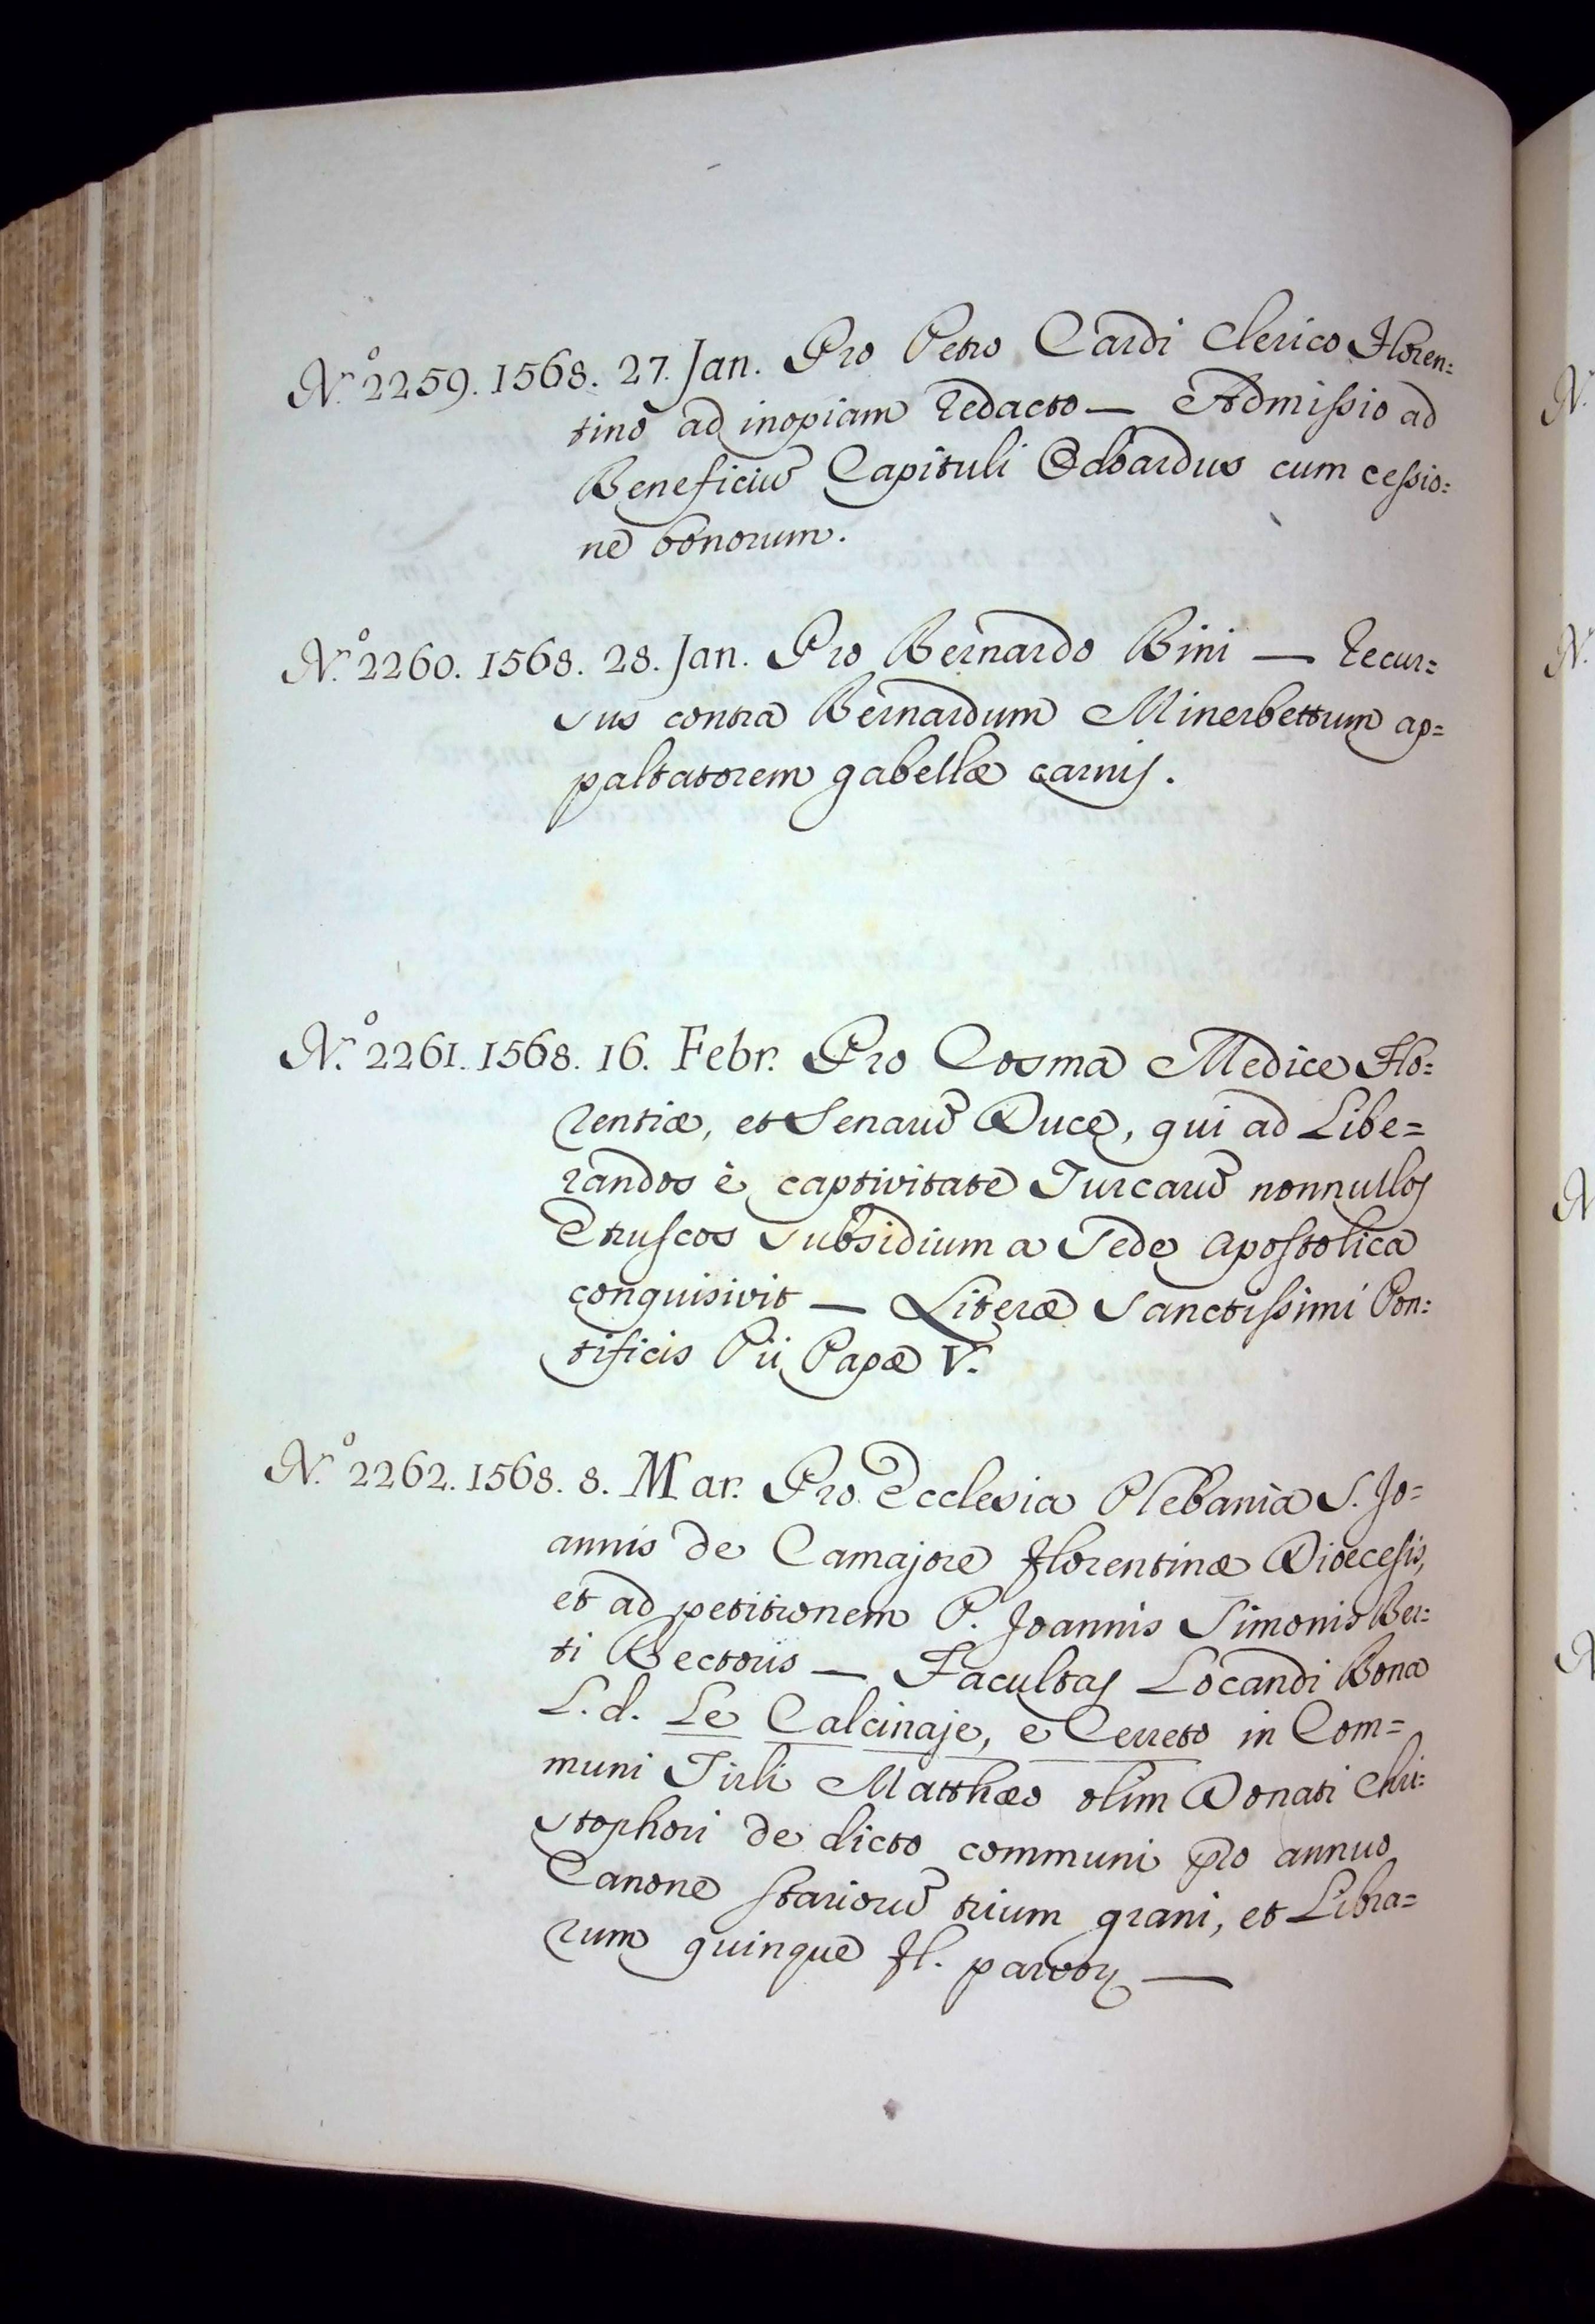 N.º 2259. 1568. 27. Jan. Pro Petro Cardi Clerico Floren=
tino ad inopiam redacto — Admissio ad
Beneficiũ Capituli Odoardus cum cessio=
ne bonorum.
N.º 2260. 1568. 28. Jan. Pro Bernardo Bini — Recur=
sus contra Bernardum Minerbettum ap=
paltatorem gabellæ carnis.
N.º 2261. 1568. 16. Febr. Pro Cosma Medice Flo=
rentiæ, et Senarũ Duce, qui ad Libe=
randos è captivitate Turcarũ nonnullos
Etruscos subsidium a Sede Apostolica
conquisivit — Literæ Sanctissimi Pon=
tificis Pii Papæ V.
N.º 2262. 1568. 8. Mar. Pro Ecclesia Plebania S. Jo=
annis de Camajore Florentinæ Dioecesis,
et ad petitionem P. Joannis Simonis Ber=
ti Rectoris — Facultas Locandi Bona
L. d. Le Calcinaje, e Cerreto in Com=
muni Tirli Matthæo olim Donati Chri=
stophori de dicto communi pro annuo
Canone stariorũ trium grani, et Libra=
rum quinque fl. parvoꝝ —
N.
N.
N
N